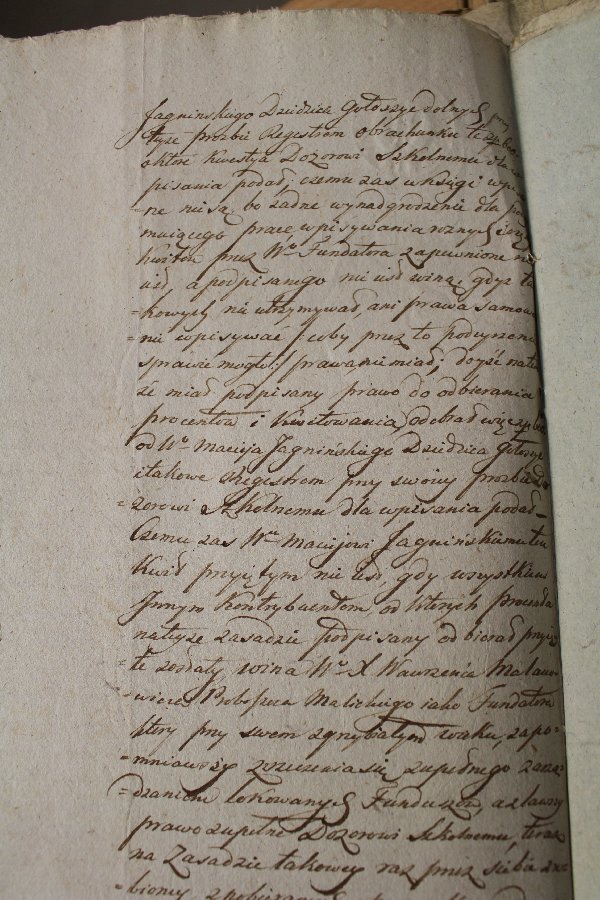 Jagninskiego Dziedzica Gołoszyc dolnych przy
tyże prozbie Registrem obrachunku te
o które kwestya Dozorowi Szkolnemu dla
pisania podał; czemu zas w księgi wpi
ne nie są, bo żadne wynadgrodzenie dla po
muiącego pracę wpisywania roznych
kwitów przez Wo Fundatora zapewnione nie
iest, a podpisanego nie iest winą, gdyż ta
=kowych nie utrzymywał, ani prawa samow
=nie wpisywać
sprawie mogło:/ prawa nie miał; dosyć na
że miał podpisany prawo do odbierania
procentów i kwitowania, odebrał więc
od Wo Macieja Jagnińskiego Dziedzica Gołoszyc
i takowe Registrem przy swoiey prozbie Do
=zorowi Szkolnemu dla wpisania podał_
Czemu zas Wmu Maciejowi Jagnińskiemu ten
Kwit przyiętym nie iest, gdy wszystkim
Innym Kontrybuentom od których procenta
na teyże zasadzie podpisany odbierał przyię
=te zostały, wina Wo X Wawrzenca Malano
=wicza Proboszcza Malickiego iako Fundatora
który przy swem zgrzybiałym wieku, zapo=
=mniawszy zrzeczenia się zupełnego zarzą
=dzaniem lokowanych Funduszów, a zlawszy
prawo zupełne Dozorowi Szkolnemu, teraz
na Zasadzie takowey raz przez siebie zro
=bioney